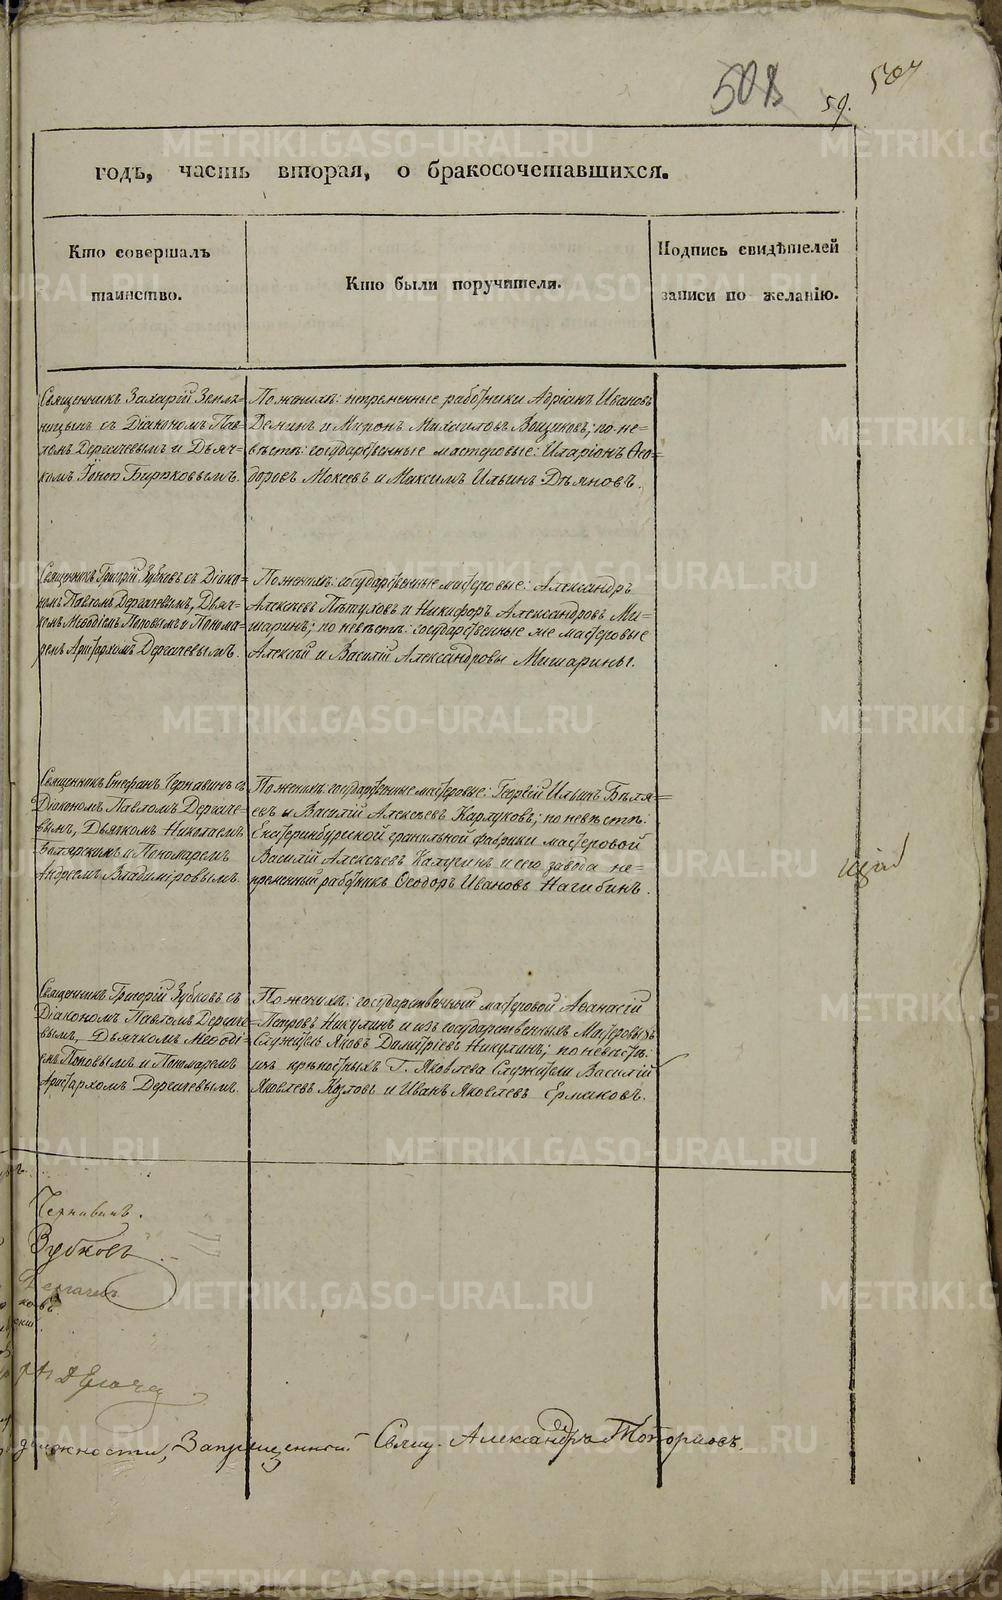 508
59.
507
годъ, часть вторая, о бракосочетавшихся.
Кто совершалъ
таинство.
Кто были поручители.
Подпись свидѣтелей
записи по желанію.
Священникъ Захарій Земля=
ницынъ съ Діакономъ Пав=
ломъ Дергачевымъ и Дьяч=
комъ Іоною Бирюковымъ.
По женихѣ: непременные работники Адріанъ Ивановъ
Деминъ и Миронъ Михайловъ Вощиковъ; по не=
вѣстѣ: государственные мастеровые: Иларіонъ Ѳео=
доровъ Мокеевъ и Максимъ Ильинъ Дѣяновъ.
Священникъ Григорій Зубковъ съ Діако=
номъ Павломъ Дергачевымъ, Дьяч=
комъ Меѳодіемъ Поповымъ и Понома=
ремъ Аристархомъ Дергачевымъ.
По женихѣ: государственные мастеровые: Александръ
Алексѣевъ Пѣтуховъ и Никифоръ Александровъ Ми=
шаринъ; по невѣстѣ: государственные же мастеровые
Алексѣй и Василій Александровы Мишарины.
Священникъ Стефанъ Чернавинъ съ
Діакономъ Павломъ Дергаче=
вымъ, Дьячкомъ Николаемъ
и Пономаремъ
Андреемъ Владиміровымъ.
По женихѣ государственные мастеровые: Георгій Ильинъ Бѣля=
евъ и Василій Алексѣевъ Карлуковъ; по невѣстѣ:
Екатеринбургской гранильной фабрики мастеровой
Василій Алексѣевъ Калугинъ и сего завода не=
пременный работникъ Ѳеодоръ Ивановъ Нагибинъ.
Священникъ Григорій Зубковъ съ
Діакономъ Павломъ Дергаче=
вымъ, Дьячкомъ Меѳоді=
емъ Поповымъ и Пономаремъ
Аристархомъ Дергачевымъ.
По женихѣ: государственный мастеровой Аѳанасій
Петровъ Никулинъ и изъ государственныхъ мастеровыхъ
Служитель Яковъ Димитріевъ Никулинъ; по невѣстѣ:
изъ крѣпостныхъ Г. Яковлева Служители Василій
Яковлевъ Козловъ и Иванъ Яковлевъ Ермаковъ.
Чернавинъ.
Зубковъ
Дергачевъ
должности, Запрещенной Свящ. Александръ Топорковъ.
METRIKI.GASO-URAL.RU